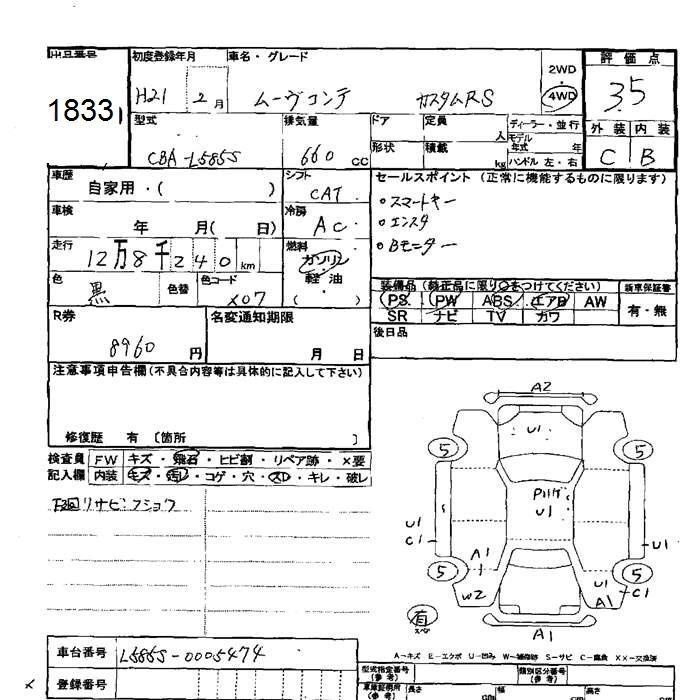 出品番号 初度登録年月 車名・グレード 2WD 評価点
1833 H21 2月 ムーヴコンテ カスタムRS ・ 4WD 3.5
型式 排気量 ドア 定員 人 ディーラー・並行 外装 内装
CBA-L585S 660cc 形状 積載 kg モデル年式 年 ハンドル 左・右 C B
車歴 自家用・( ) シフト CAT セールスポイント (正常に機能するものに限ります)
車検 年 月( 日) 冷房 AC
・スマートキー
・エンスタ
・Bモニター
走行 12万8千240km 燃料 ガソリン 軽油 ( )
装備品 (純正品に限り○をつけてください) 新車保証書
色 黒 色替 色コード X07
PS PW ABS エアB AW 有・無
SR ナビ TV カワ
R券 8960円 名変通知期限 月 日
後日品
注意事項申告欄(不具合内容等は具体的に記入して下さい)
修復歴 有 〔箇所 〕
A2
U1
5 5
検査員 FW キズ・飛石・ヒビ割・リペア跡・×要
記入欄 内装 キズ・汚れ・コゲ・穴・スレ・キレ・破レ
下回リサビ・フショク
U1
U1
C1
U1
A1
5 5
W2
U1
A1
C1
有
スペア
A1
A-キズ E-エクボ U-凹み W-補修跡 S-サビ C-腐食 XX-交換済
車台番号 L585S-0005474 型式指定番号(参考) 類別区分番号(参考)
登録番号 車庫証明所(参考) 長さ cm 幅 cm 高さ cm